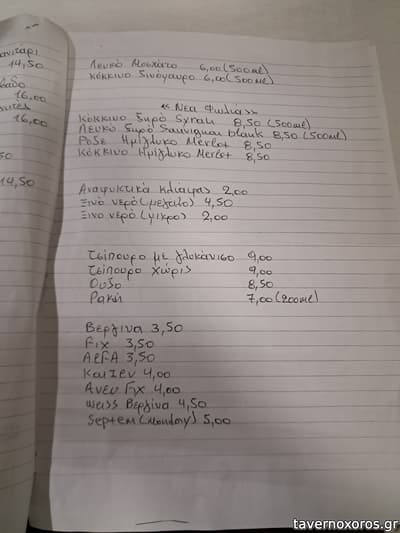 ανιταρι
14,50
16,00
16,00
50
14,50
Λευκό Μοσχάτο 6,00 (500ml)
κόκκινο ξινόμαυρο 6,00 (500ml)
<< Νεα Φωλιά >>
Κόκκινο ξηρό Syrah 8,50 (500ml)
Λευκό ξηρό Sauvignon blank 8,50 (500ml)
Ροζε Ημίγλυκο Merlot 8,50
Κόκκινο Ημίγλυκο Merlot 8,50
Αναψυκτικά κλιάφας 2,00
Ξινό νερό (μεγάλο) 4,50
Ξινο νερό (μικρο) 2,00
Τσίπουρο με γλυκάνισο 9,00
Τσίπουρο χωρίς 9,00
Ουζο 8,50
Ρακή 7,00 (200ml)
Βεργίνα 3,50
Fix 3,50
ALFA 3,50
Καιζεν 4,00
Ανευ Fix 4,00
weiss Βεργίνα 4,50
Septem (Monday) 5,00
tavernoxoros.gr